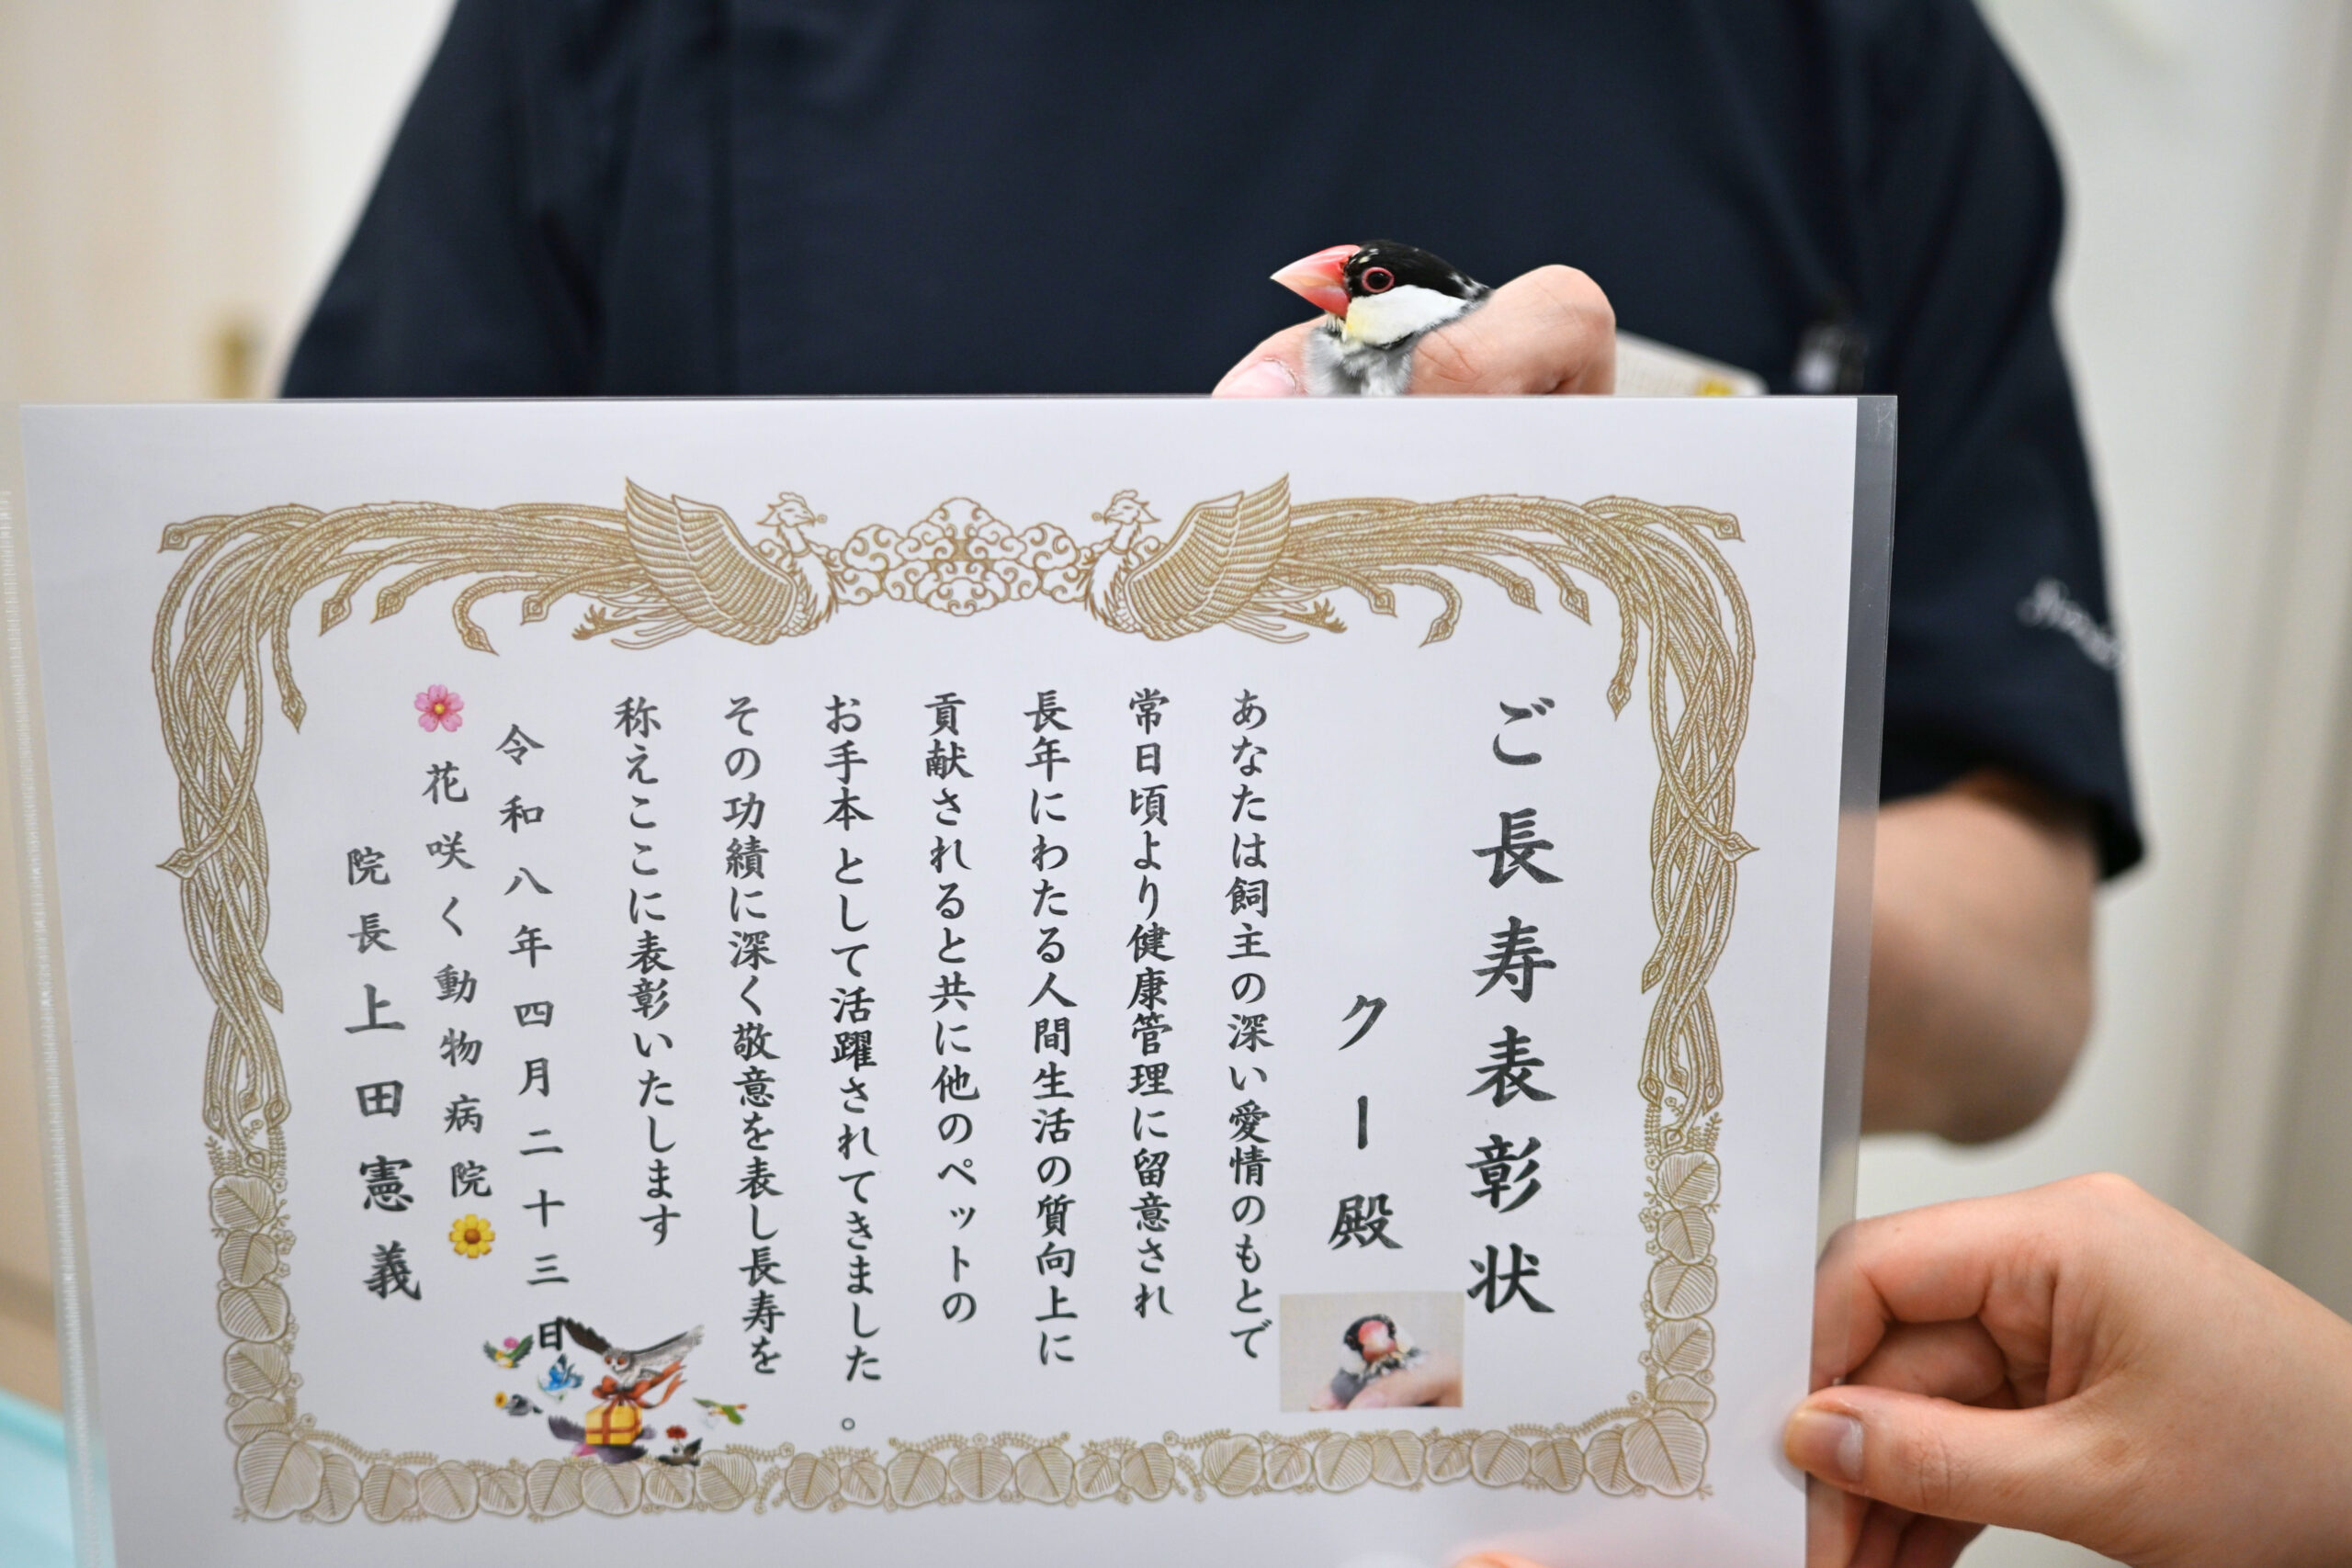 ご長寿表彰状
クー殿
あなたは飼主の深い愛情のもとで
常日頃より健康管理に留意され
長年にわたる人間生活の質向上に
貢献されると共に他のペットの
お手本として活躍されてきました。
その功績に深く敬意を表し長寿を
称えここに表彰いたします
令和八年四月二十三日
花咲く動物病院
院長上田憲義